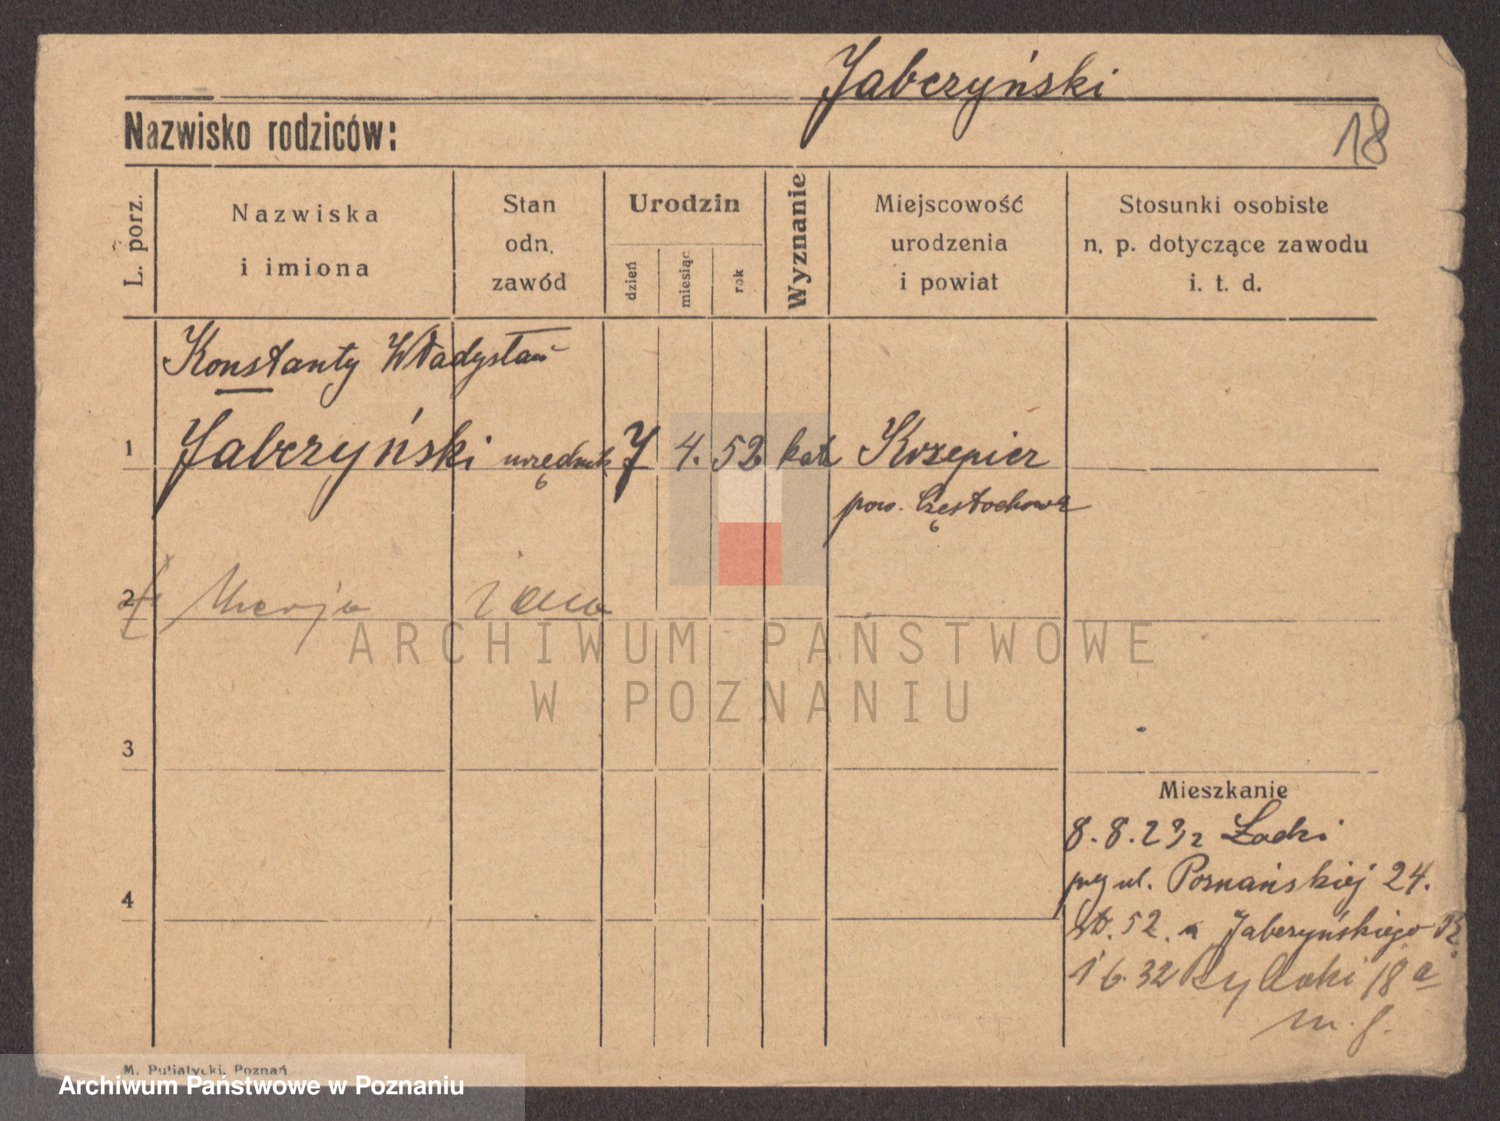 Jabczyński
Nazwisko rodziców:
18
L. porz.
Nazwiska
i imiona
Stan
odn.
zawód
Urodzin
dzień
miesiąc
rok
Wyznanie
Miejscowość
urodzenia
i powiat
Stosunki osobiste
n. p. dotyczące zawodu
i. t. d.
Konstanty Władysław
1 Jabczyński urzędnik 7 4. 52 kat Krzepice
pow. Częstochowa
2 Marja żona
ARCHIWUM PAŃSTWOWE
W POZNANIU
3
Mieszkanie
8.8.23 z Łodzi
przy ul. Poznańskiej 24.
4
52. Jabczyńskiego
1 6. 32 Rybaki 18 a
M. Putiatycki, Poznań.
Archiwum Państwowe w Poznaniu